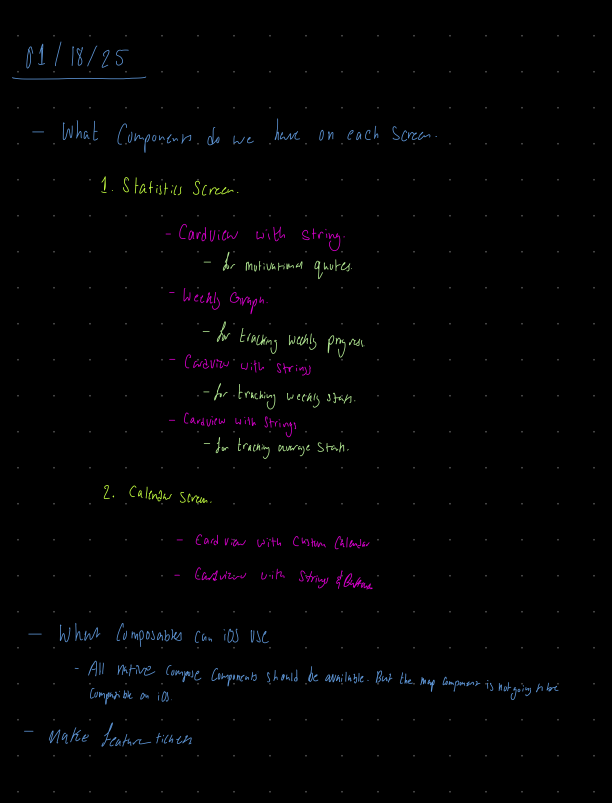 01/18/25
- What Components do we have on each screen.
1. Statistics Screen.
- CardView with String.
- for motivational quotes.
- Weekly Graph.
- for tracking weekly progress
- Cardview with Strings
- for tracking weekly stats.
- Cardview with Strings
- for tracking average stats.
2. Calendar screen.
- Card view with Custom Calendar
- Cardview with Strings &
- What Composables can iOS use
- All native Compose Components should be available. But the map component is not going to be
compatible on iOS.
- Make feature tickets